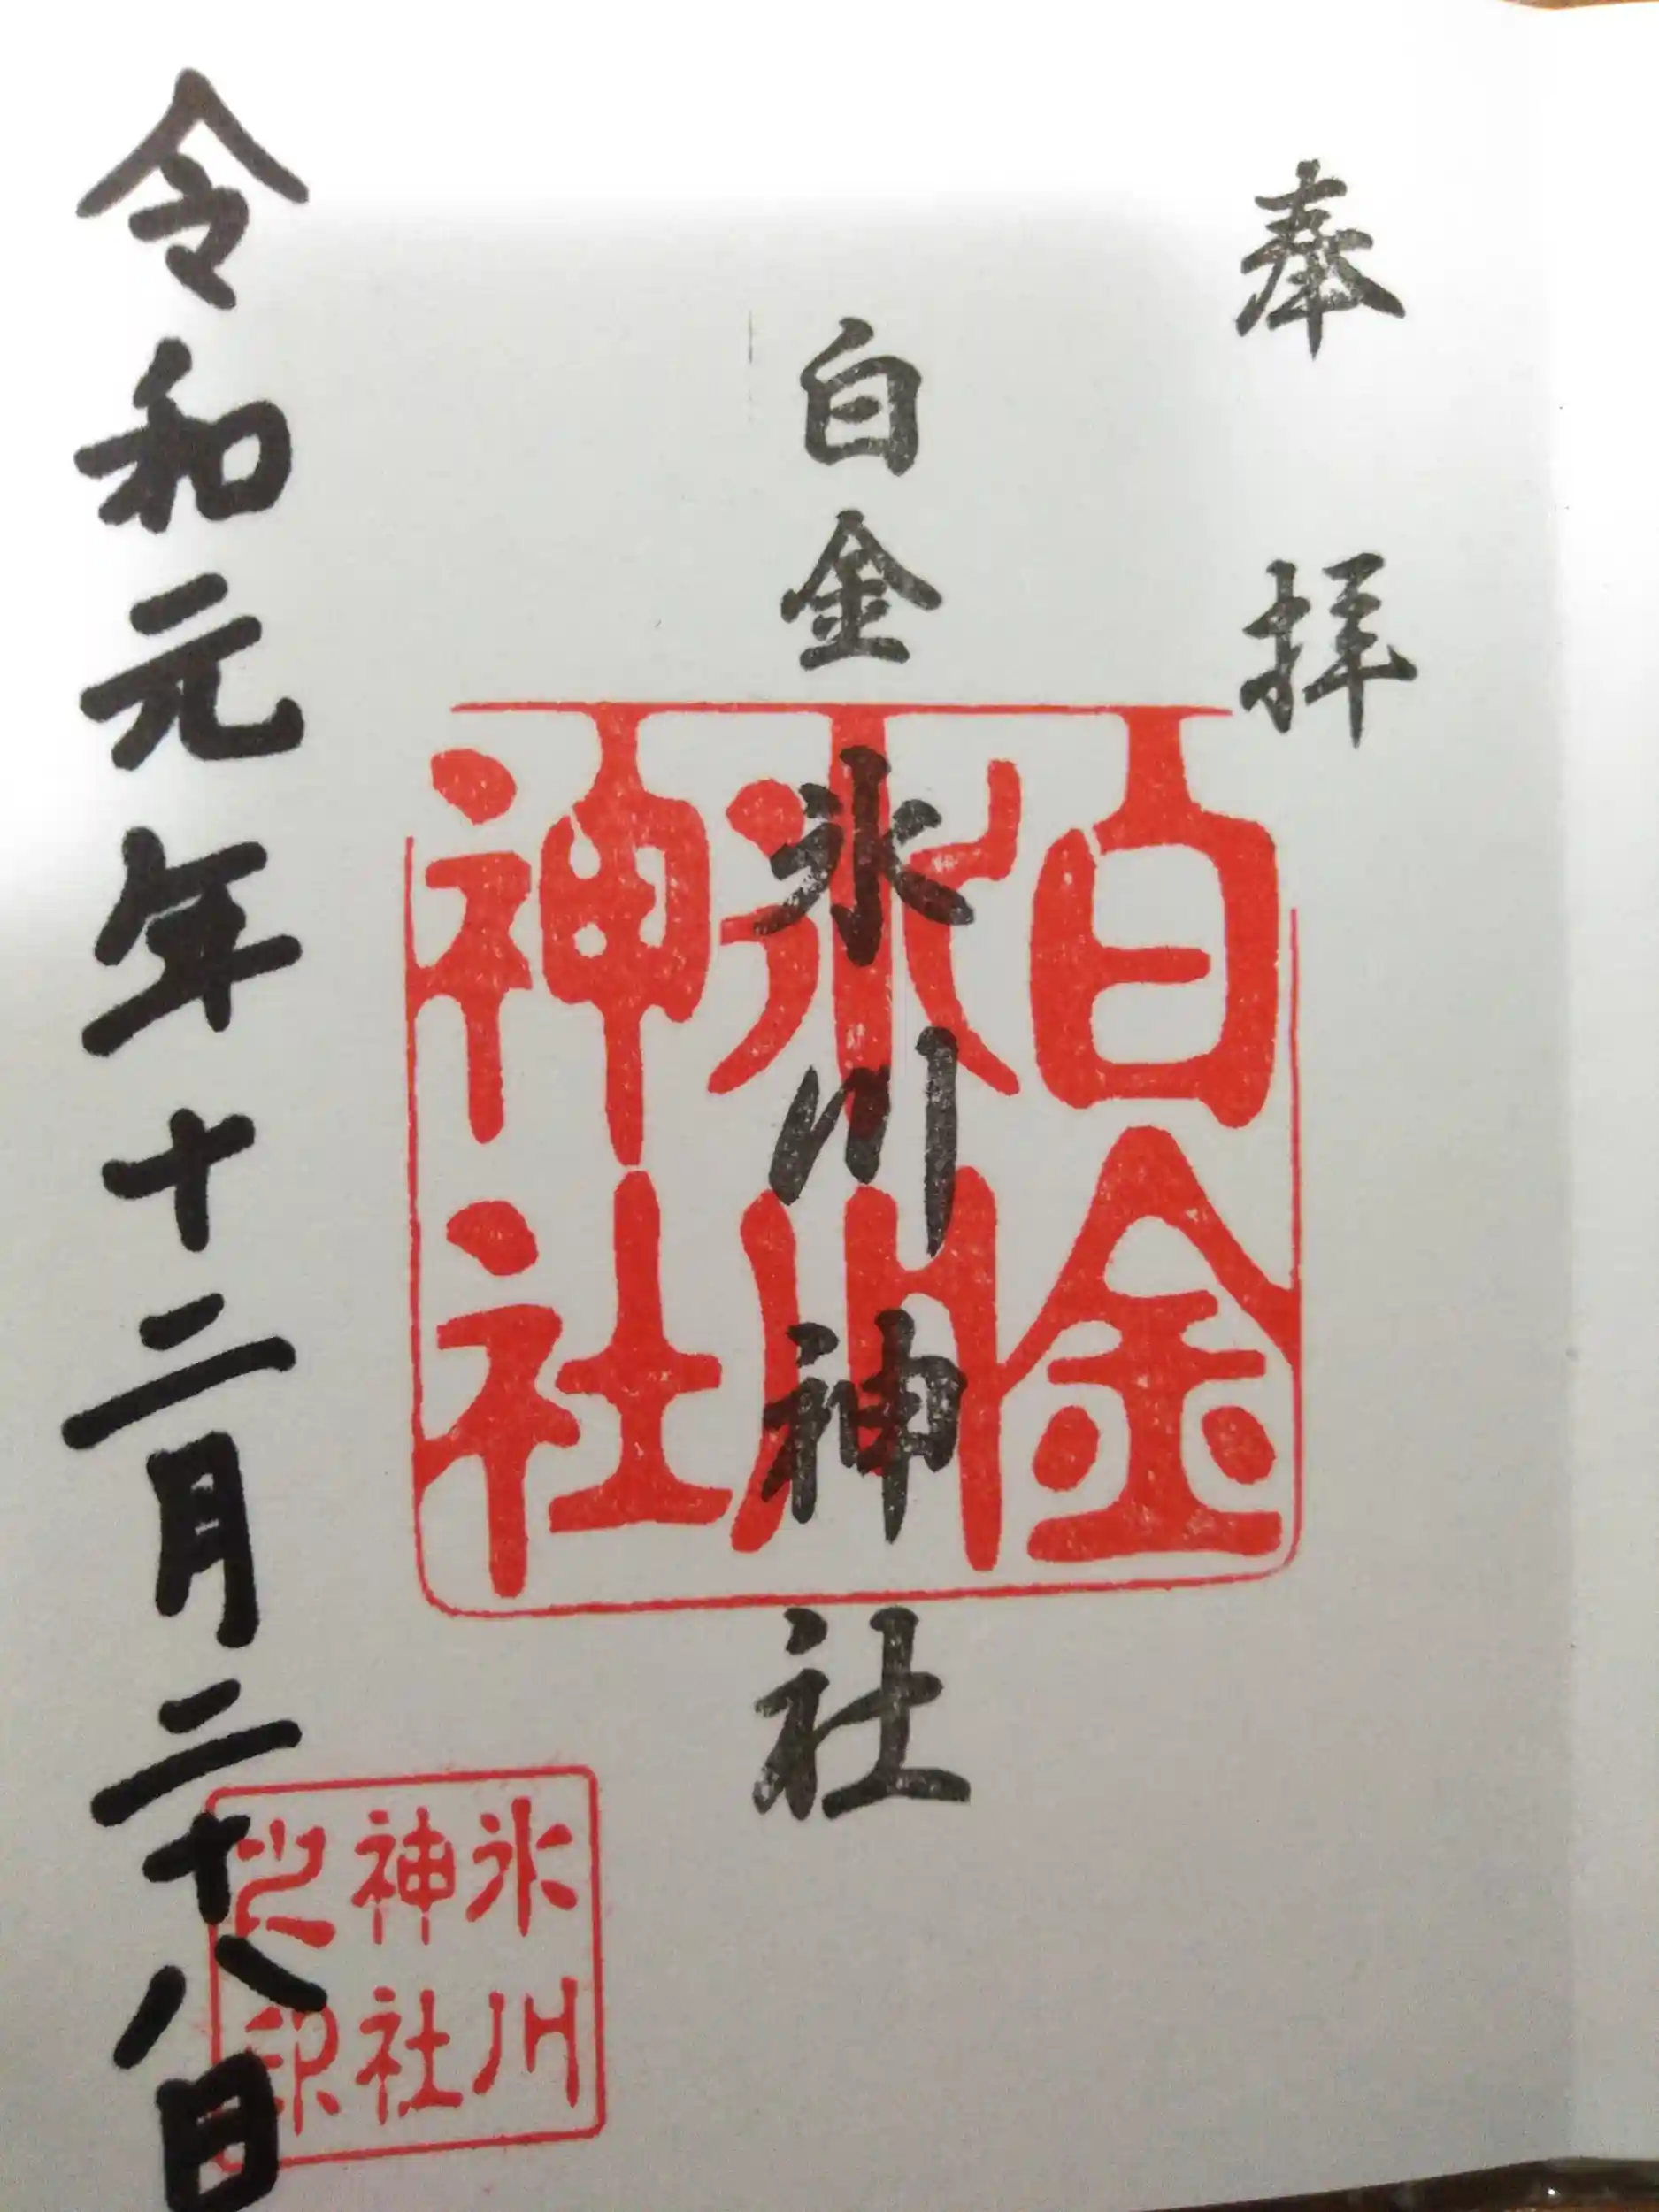 奉拝
白金氷川神社
白金
氷川
神社
令和元年十二月二十八日
氷川
神社
之印